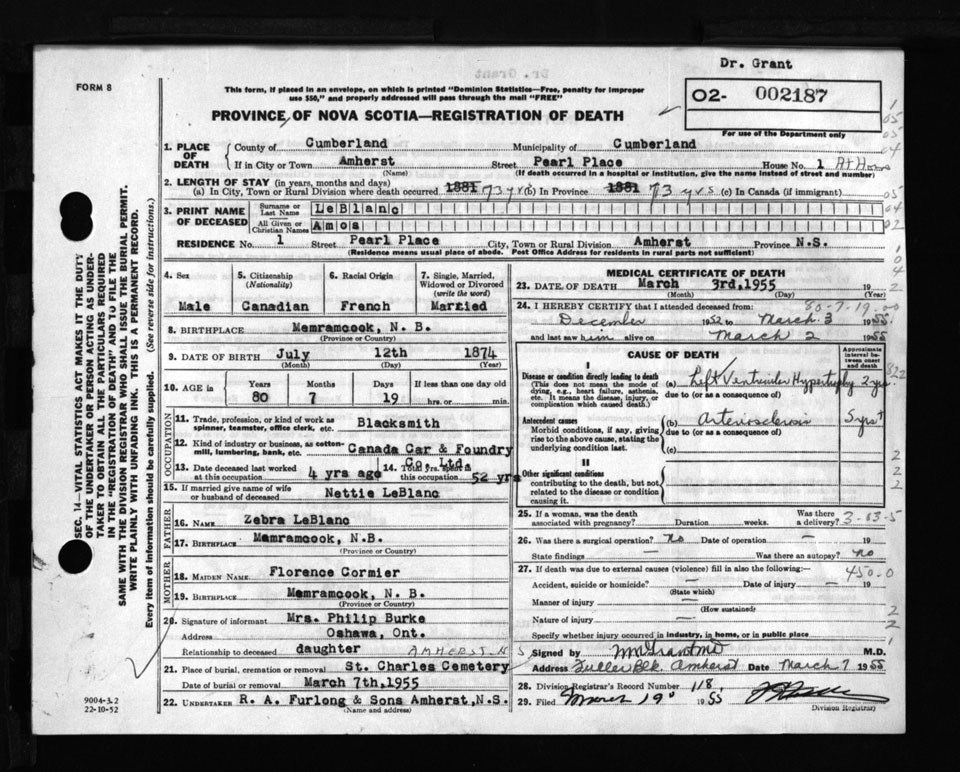 Dr. Grant
FORM 8
This form, if placed in an envelope, on which is printed "Dominion Statistics—Free, penalty for improper
use $50," and properly addressed will pass through the mail "FREE"
O2- 002187
For use of the Department only
PROVINCE OF NOVA SCOTIA—REGISTRATION OF DEATH
1. PLACE OF DEATH
County of Cumberland Municipality of Cumberland
If in City or Town Amherst Street Pearl Place House No. 1 At Home
(Name) (If death occurred in a hospital or institution, give the name instead of street and number)
2. LENGTH OF STAY (in years, months and days)
(a) In City, Town or Rural Division where death occurred 1881 73 yrs (b) In Province 1881 73 yrs (c) In Canada (if immigrant)
3. PRINT NAME OF DECEASED
Surname or Last Name LeBlanc
All Given or Christian Names Amos
RESIDENCE No. 1 Street Pearl Place City, Town or Rural Division Amherst Province N.S.
(Residence means usual place of abode. Post Office Address for residents in rural parts not sufficient)
4. Sex
Male
5. Citizenship
(Nationality)
Canadian
6. Racial Origin
French
7. Single, Married,
Widowed or Divorced
(write the word)
Married
8. BIRTHPLACE Memramcook, N. B.
(Province or Country)
9. DATE OF BIRTH July 12th 1874
(Month) (Day) (Year)
10. AGE IN Years Months Days If less than one day old
80 7 19 hrs. or min.
OCCUPATION
11. Trade, profession, or kind of work as
spinner, teamster, office clerk, etc. Blacksmith
12. Kind of industry or business, as cotton-
mill, lumbering, bank, etc. Canada Car & Foundry
Co., Ltd.
13. Date deceased last worked
at this occupation 4 yrs ago
14. Total yrs. spent in
this occupation 52 yrs
15. If married give name of wife
or husband of deceased Nettie LeBlanc
FATHER
16. NAME Zebra LeBlanc
17. BIRTHPLACE Memramcook, N.B.
(Province or Country)
MOTHER
18. MAIDEN NAME Florence Cormier
19. BIRTHPLACE Memramcook, N. B.
(Province or Country)
20. Signature of informant Mrs. Philip Burke
Address Oshawa, Ont.
Relationship to deceased daughter
AMHERST N S
21. Place of burial, cremation or removal St. Charles Cemetery
Date of burial or removal March 7th,1955
22. UNDERTAKER R. A. Furlong & Sons Amherst,N.S.
(Name and address)
MEDICAL CERTIFICATE OF DEATH
23. DATE OF DEATH March 3rd,1955 19
(Month) (Day) (Year)
24. I HEREBY CERTIFY that I attended deceased from: 80-7-19
December 1952 to March 3 1955
and last saw him alive on March 2 1955
CAUSE OF DEATH
Approximate
interval be-
tween onset
and death
I
Disease or condition directly leading to death
(This does not mean the mode of
dying, e.g., heart failure, asthenia,
etc. It means the disease, injury, or
complication which caused death.)
(a) Left Ventricular Hypertrophy 2 yrs.
due to (or as a consequence of)
Antecedent causes
Morbid conditions, if any, giving
rise to the above cause, stating the
underlying condition last.
(b) Arteriosclerosis 5 yrs +
due to (or as a consequence of)
(c)
II
Other significant conditions
contributing to the death, but not
related to the disease or condition
causing it.
25. If a woman, was the death
associated with pregnancy? Duration weeks. Was there
a delivery? 3-03-5
26. Was there a surgical operation? No Date of operation — 19
State findings — Was there an autopsy? No
27. If death was due to external causes (violence) fill in also the following:— 450-0
Accident, suicide or homicide? — Date of injury — 19
(State which)
Manner of injury —
(How sustained)
Nature of injury —
Specify whether injury occurred in industry, in home, or in public place
Signed by Wm Grant MD M.D.
Address Fuller Blk. Amherst Date March 7 1955
28. Division Registrar's Record Number 118
29. Filed March 19 1955
Division Registrar
9004-3.2
22-10-52
SEC. 14—VITAL STATISTICS ACT MAKES IT THE DUTY
OF THE UNDERTAKER OR PERSON ACTING AS UNDER-
TAKER TO OBTAIN ALL THE PARTICULARS REQUIRED
IN THE "REGISTRATION OF DEATH" AND TO FILE THE
SAME WITH THE DIVISION REGISTRAR WHO SHALL ISSUE THE BURIAL PERMIT.
WRITE PLAINLY WITH UNFADING INK. THIS IS A PERMANENT RECORD.
Every item of information should be carefully supplied. (See reverse side for instructions.)